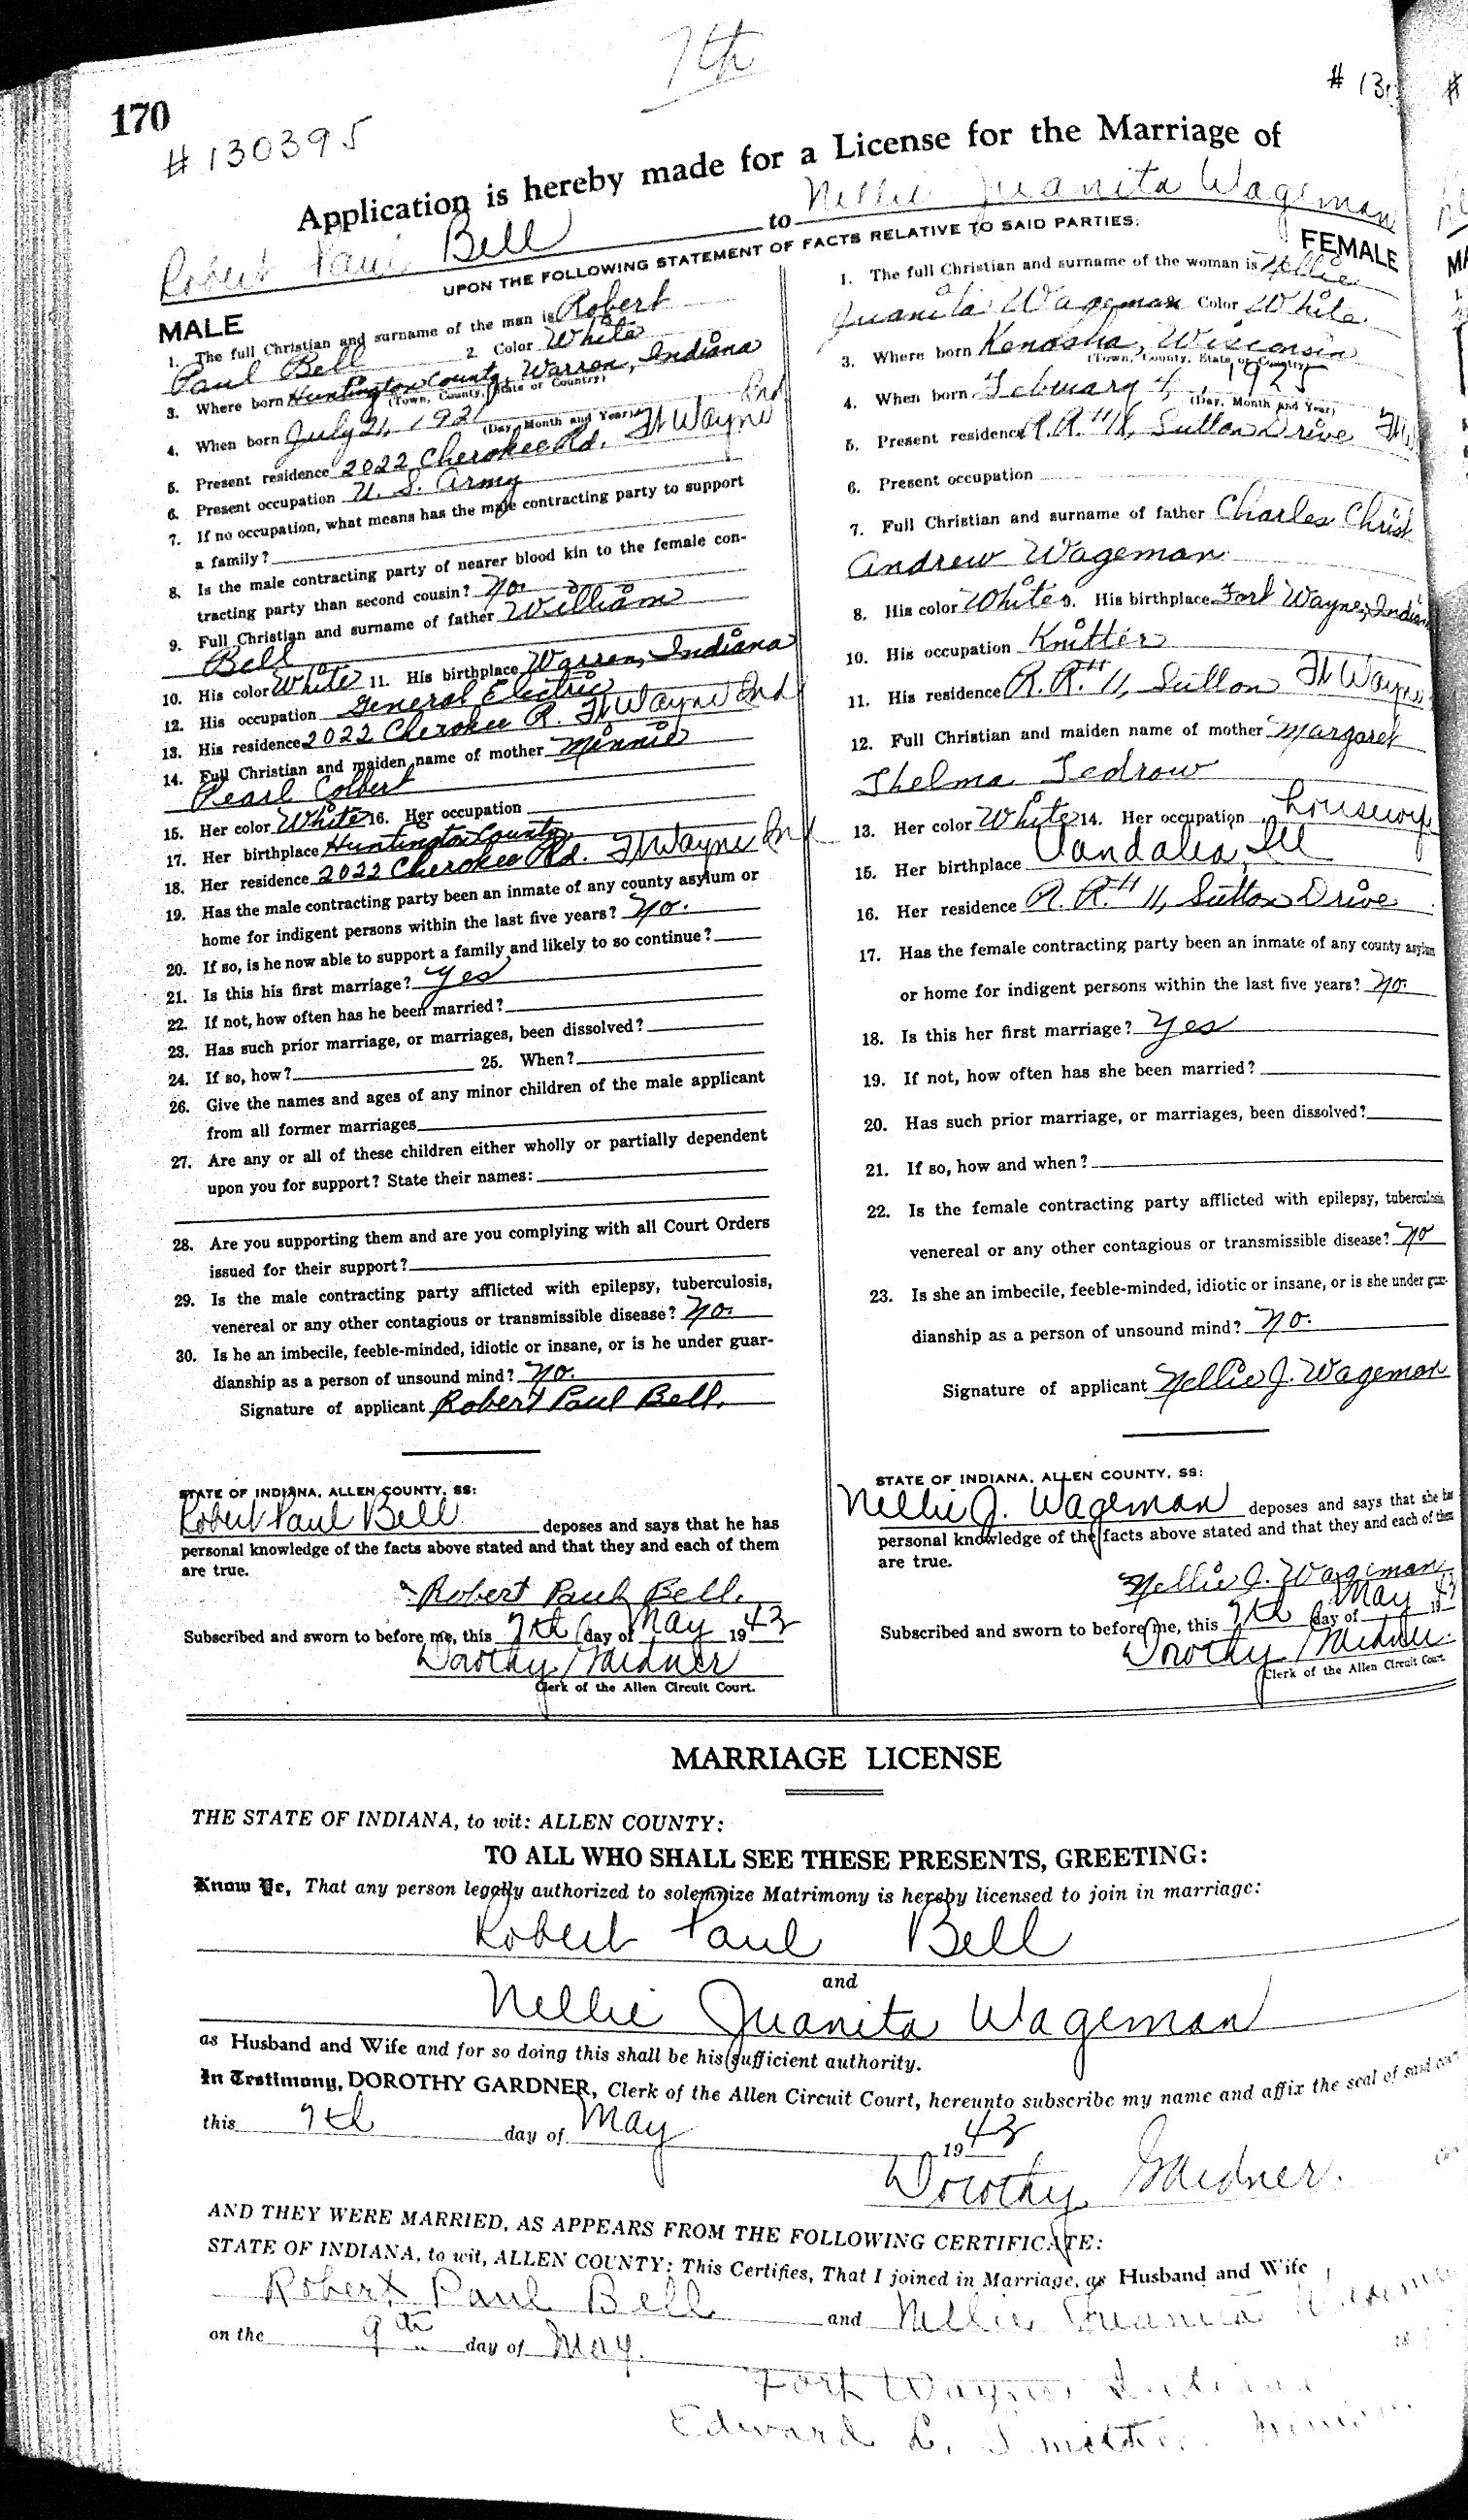 7th
170
# 130395
# 13
Application is hereby made for a License for the Marriage of
Robert Paul Bell to Nellie Juanita Wageman
UPON THE FOLLOWING STATEMENT OF FACTS RELATIVE TO SAID PARTIES:
MALE
1. The full Christian and surname of the man is Robert
Paul Bell 2. Color White
3. Where born Huntington County, Warren, Indiana
(Town, County, State or Country)
4. When born July 21, 1921
(Day, Month and Year)
5. Present residence 2022 Cherokee Rd. Ft Wayne Ind
6. Present occupation U. S. Army
7. If no occupation, what means has the male contracting party to support
a family?
8. Is the male contracting party of nearer blood kin to the female con-
tracting party than second cousin? No.
9. Full Christian and surname of father William
Bell
10. His color White 11. His birthplace Warren, Indiana
12. His occupation General Electric
13. His residence 2022 Cherokee R. Ft Wayne Ind
14. Full Christian and maiden name of mother Minnie
Pearl Colbert
15. Her color White 16. Her occupation
17. Her birthplace Huntington County
18. Her residence 2022 Cherokee Rd. Ft Wayne Ind
19. Has the male contracting party been an inmate of any county asylum or
home for indigent persons within the last five years? No.
20. If so, is he now able to support a family and likely to so continue?
21. Is this his first marriage? Yes
22. If not, how often has he been married?
23. Has such prior marriage, or marriages, been dissolved?
24. If so, how? 25. When?
26. Give the names and ages of any minor children of the male applicant
from all former marriages
27. Are any or all of these children either wholly or partially dependent
upon you for support? State their names:
28. Are you supporting them and are you complying with all Court Orders
issued for their support?
29. Is the male contracting party afflicted with epilepsy, tuberculosis,
venereal or any other contagious or transmissible disease? No.
30. Is he an imbecile, feeble-minded, idiotic or insane, or is he under guar-
dianship as a person of unsound mind? No.
Signature of applicant Robert Paul Bell.
STATE OF INDIANA, ALLEN COUNTY, SS:
Robert Paul Bell deposes and says that he has
personal knowledge of the facts above stated and that they and each of them
are true.
Robert Paul Bell.
Subscribed and sworn to before me, this 7th day of May 1943
Dorothy Gardner
Clerk of the Allen Circuit Court.
FEMALE
1. The full Christian and surname of the woman is Nellie
Juanita Wageman Color White
3. Where born Kenosha, Wisconsin
(Town, County, State or Country)
4. When born February 4, 1925
(Day, Month and Year)
5. Present residence R.R. # 11, Sutton Drive
6. Present occupation
7. Full Christian and surname of father Charles Christ
Andrew Wageman
8. His color White 9. His birthplace Fort Wayne, Indiana
10. His occupation Knitter
11. His residence R. R. # 11, Sutton Ft Wayne
12. Full Christian and maiden name of mother Margaret
Thelma Tedrow
13. Her color White 14. Her occupation housewife
15. Her birthplace Vandalia, Ill
16. Her residence R. R. # 11, Sutton Drive
17. Has the female contracting party been an inmate of any county asylum
or home for indigent persons within the last five years? No.
18. Is this her first marriage? Yes
19. If not, how often has she been married?
20. Has such prior marriage, or marriages, been dissolved?
21. If so, how and when?
22. Is the female contracting party afflicted with epilepsy, tuberculosis,
venereal or any other contagious or transmissible disease? No
23. Is she an imbecile, feeble-minded, idiotic or insane, or is she under guar-
dianship as a person of unsound mind? No.
Signature of applicant Nellie J. Wageman
STATE OF INDIANA, ALLEN COUNTY, SS:
Nellie J. Wageman deposes and says that she has
personal knowledge of the facts above stated and that they and each of them
are true.
Nellie J. Wageman
Subscribed and sworn to before me, this 7th day of May 1943
Dorothy Gardner
Clerk of the Allen Circuit Court.
MARRIAGE LICENSE
THE STATE OF INDIANA, to wit: ALLEN COUNTY:
TO ALL WHO SHALL SEE THESE PRESENTS, GREETING:
Know Ye, That any person legally authorized to solemnize Matrimony is hereby licensed to join in marriage:
Robert Paul Bell
and
Nellie Juanita Wageman
as Husband and Wife and for so doing this shall be his sufficient authority.
In Testimony, DOROTHY GARDNER, Clerk of the Allen Circuit Court, hereunto subscribe my name and affix the seal of said court
this 7th day of May 1943
Dorothy Gardner.
AND THEY WERE MARRIED, AS APPEARS FROM THE FOLLOWING CERTIFICATE:
STATE OF INDIANA, to wit, ALLEN COUNTY: This Certifies, That I joined in Marriage, as Husband and Wife
Robert Paul Bell and Nellie Juanita Wageman
on the 9th day of May.
Fort Wayne Indiana
Edward L. Smith